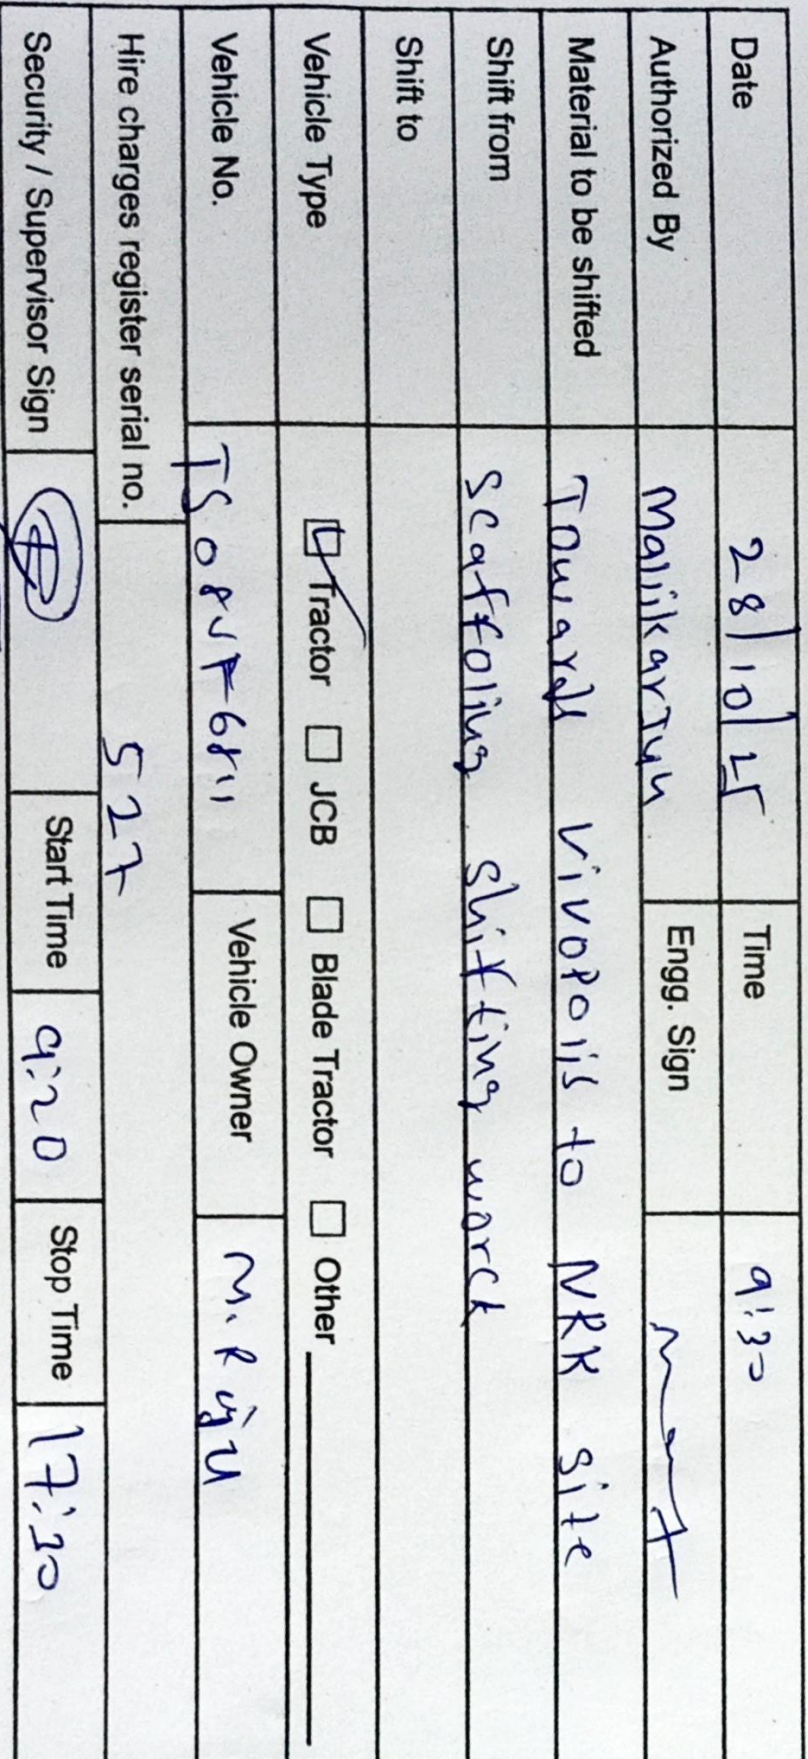 Date 28/10/25 Time 9:30
Authorized By Mallikarjun Engg. Sign
Material to be shifted Towards Vivopolis to NRK Site
Shift from Scaffoling shifting worck
Shift to
Vehicle Type Tractor JCB Blade Tractor Other
Vehicle No. Vehicle Owner M. Raju
Hire charges register serial no. 527
Security / Supervisor Sign Start Time 9:20 Stop Time 17:30